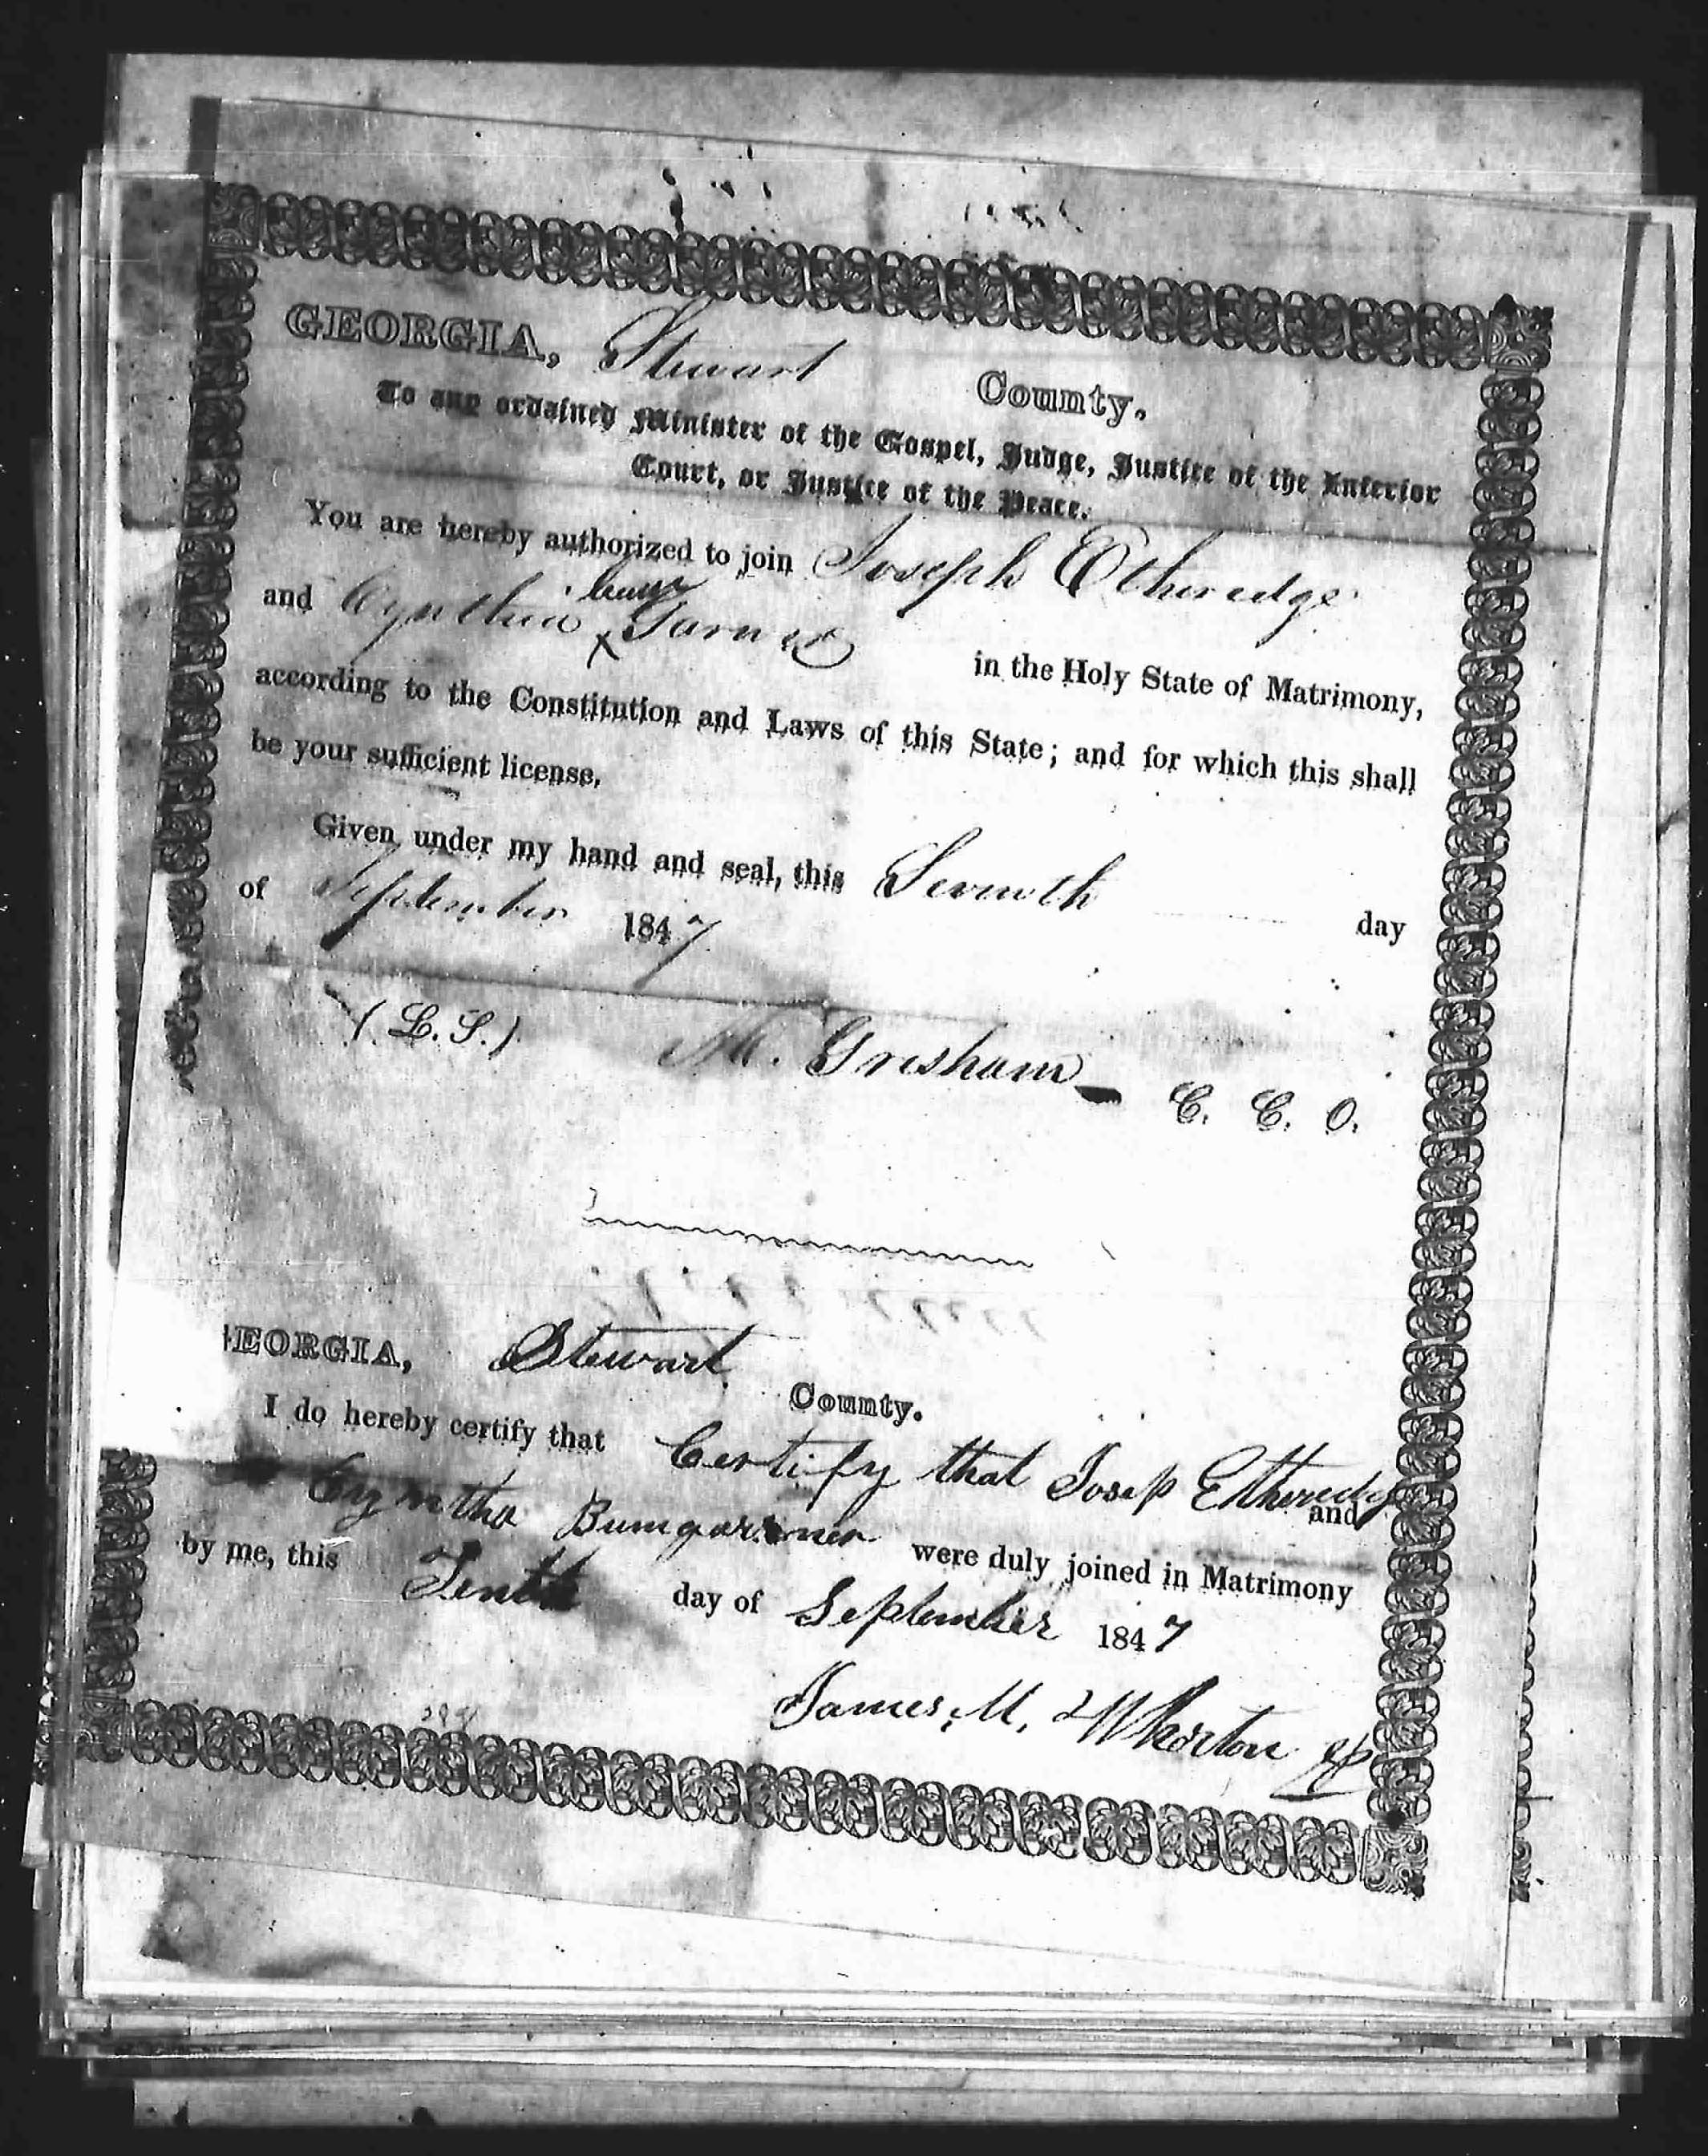 GEORGIA, Stewart County.
To any ordained Minister of the Gospel, Judge, Justice of the Inferior
Court, or Justice of the Peace.
You are hereby authorized to join Joseph Etheredge
and Cynthia Garner
in the Holy State of Matrimony,
according to the Constitution and Laws of this State; and for which this shall
be your sufficient license.
Given under my hand and seal, this Seventh day
of September 1847
(L. S.) M. Gresham C. C. O.
EORGIA, Stewart County.
I do hereby certify that Certify that Josep Etheredg and
Cyntha Bumgarner were duly joined in Matrimony
by me, this Tenth day of September 1847
James M. Wharton JP